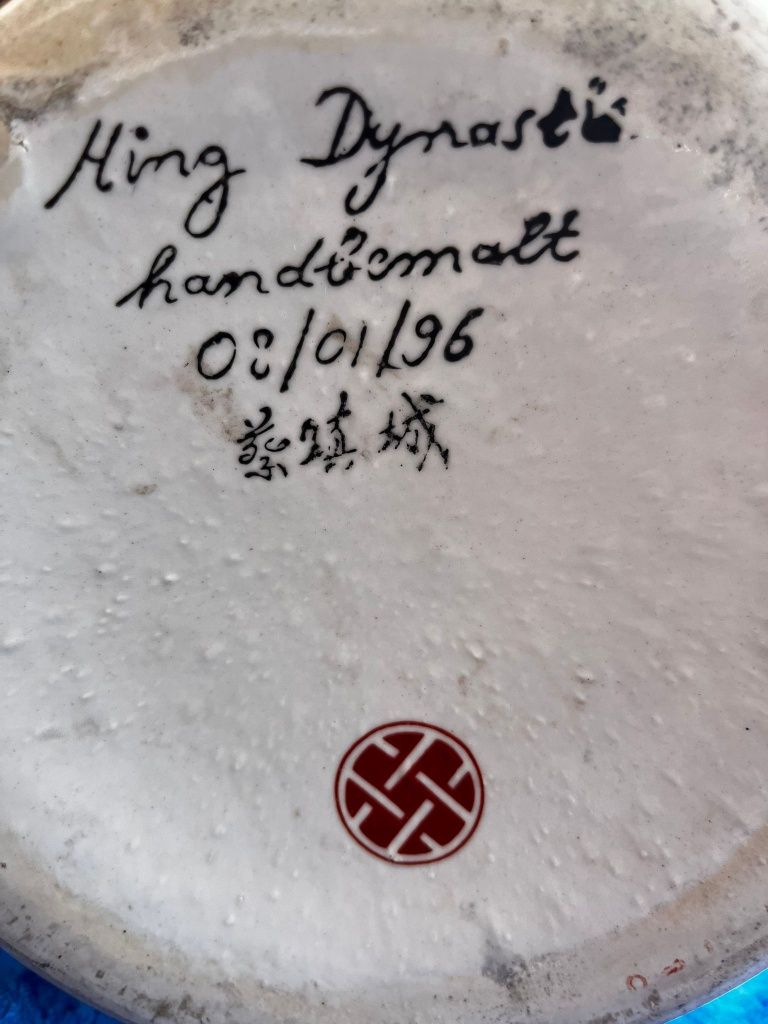 Ming Dynasti
handbemalt
08/01/96
蔡鎮城